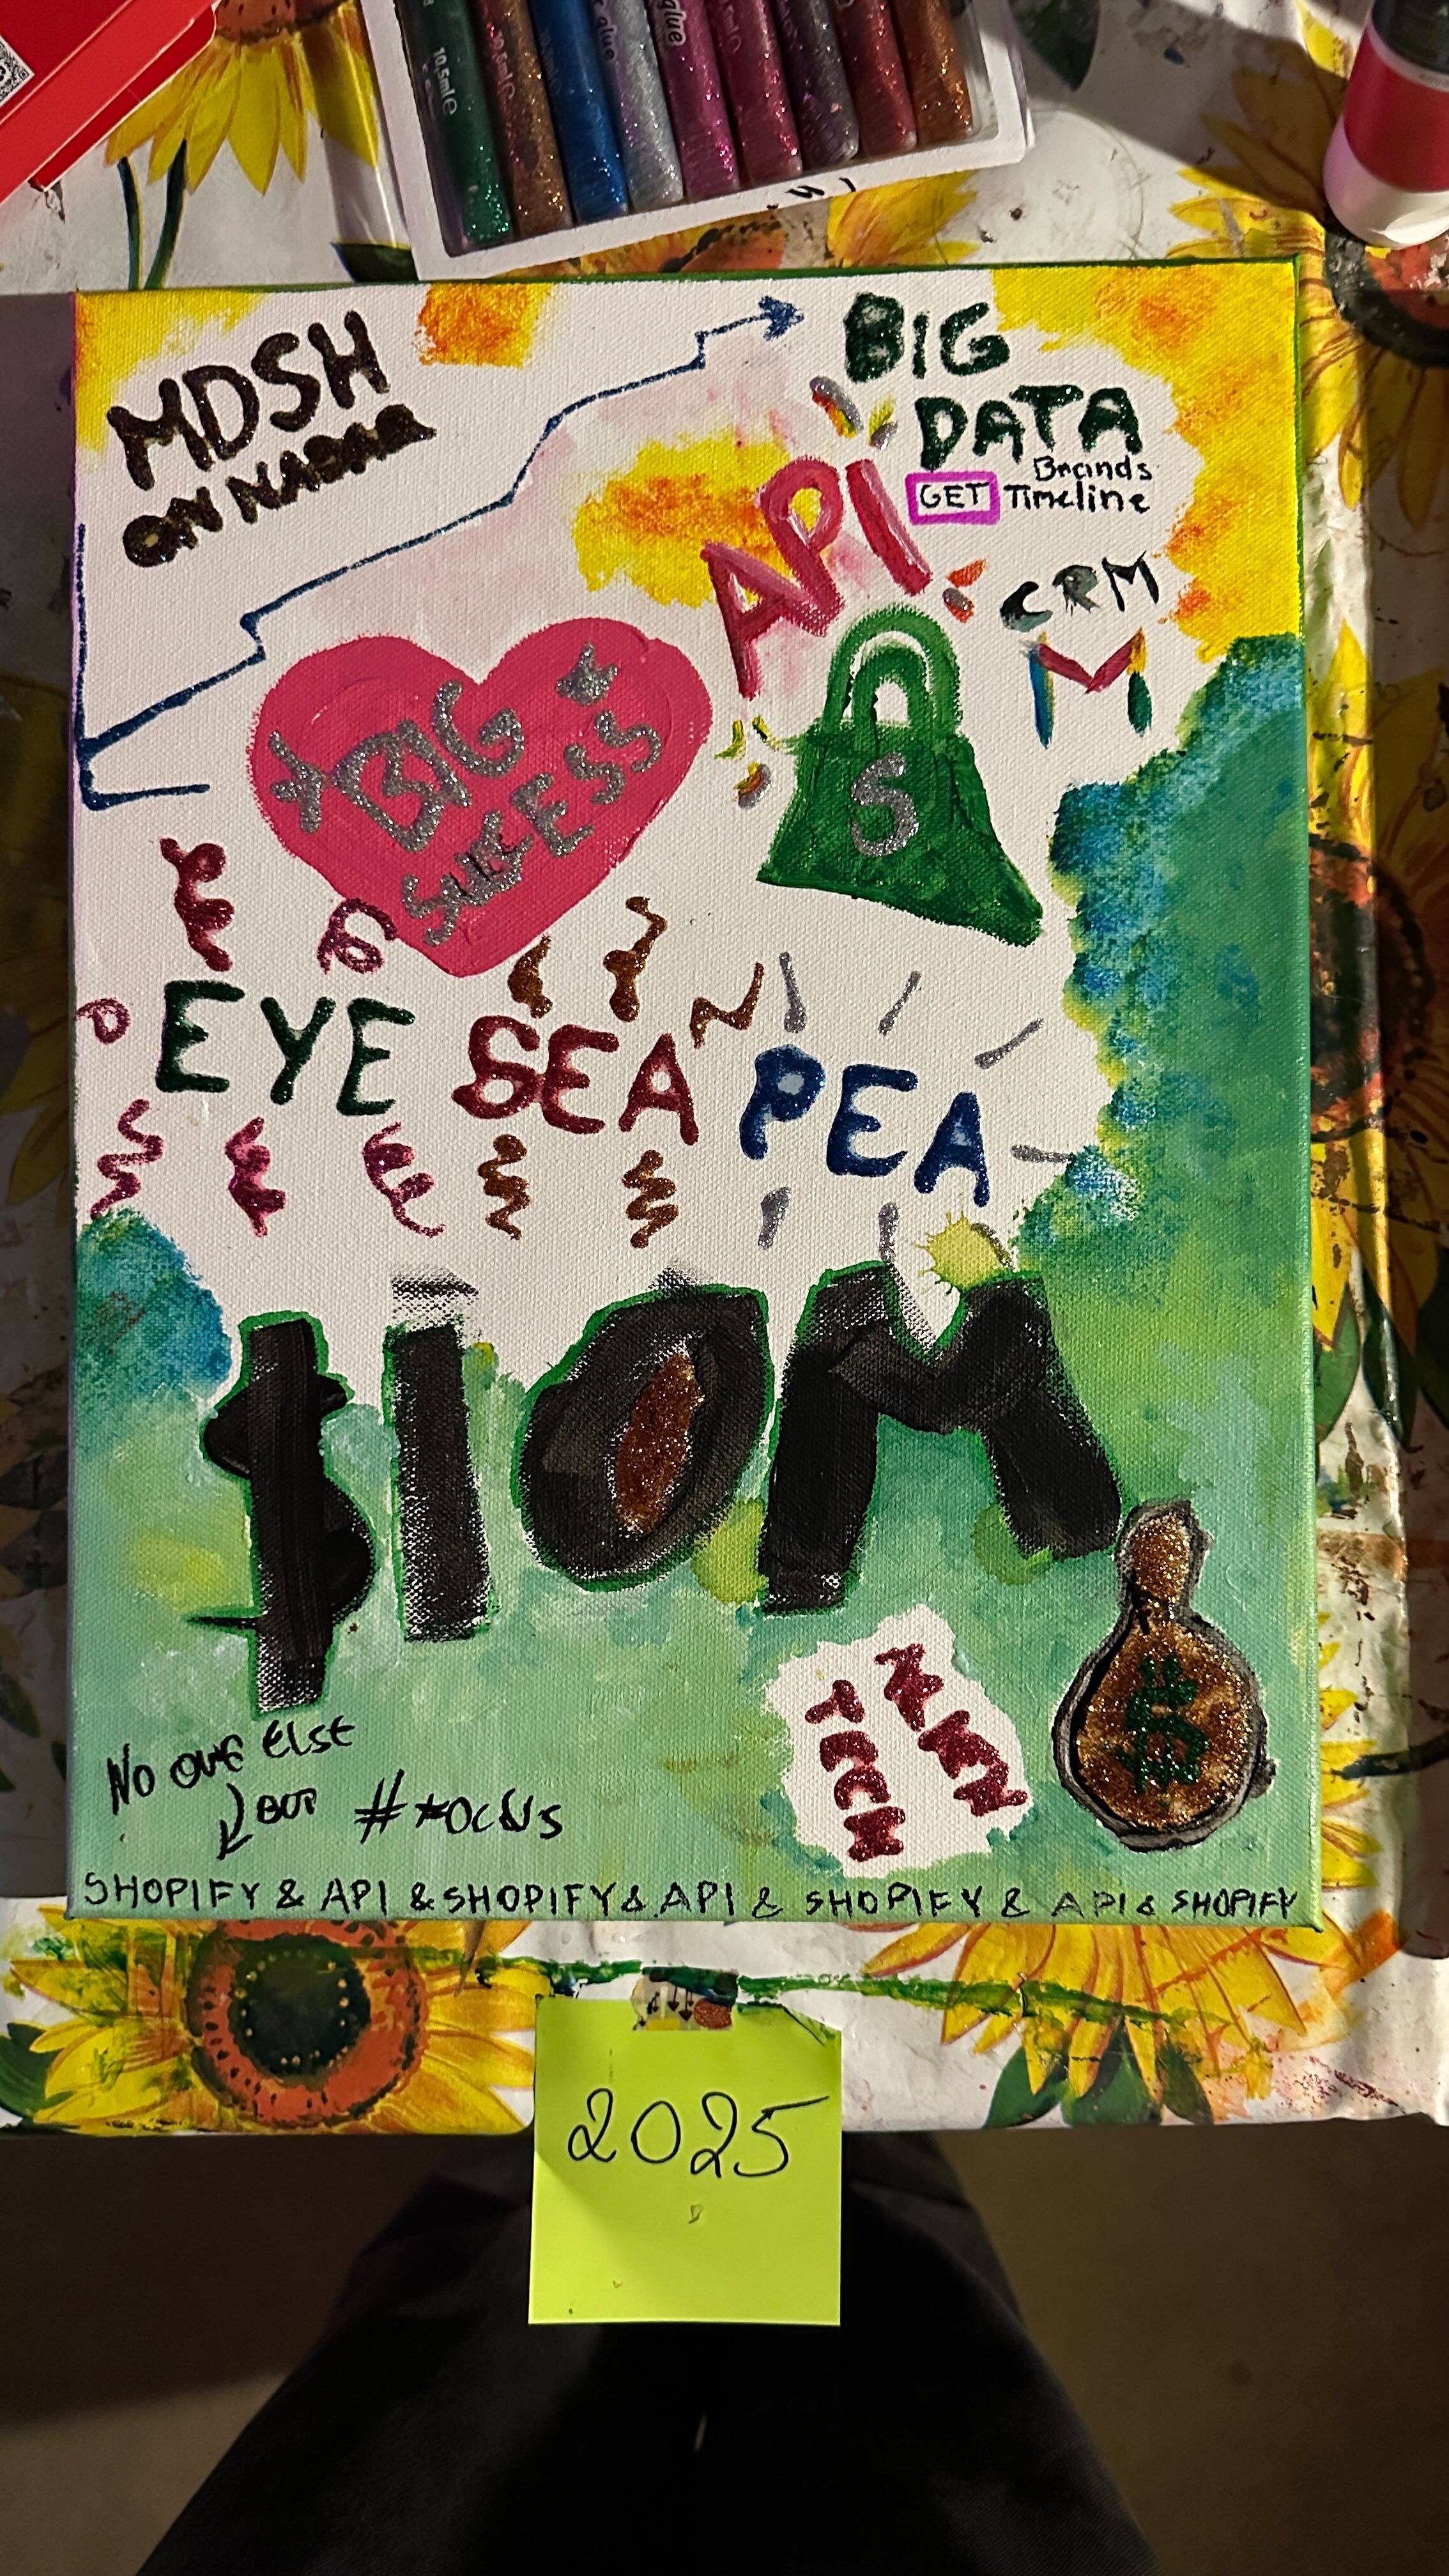 10.5ml e
glue
glue
MDSH
ON NASDAQ
BIG
DATA
Brands
GET Timeline
API
CRM
M
BIG
SUCCESS
S
EYE SEA PEA
$10M
TECH
NO ONE ELSE
BUT
#FOCUS
$
SHOPIFY & API & SHOPIFY & API & SHOPIFY & API & SHOPIFY
2025